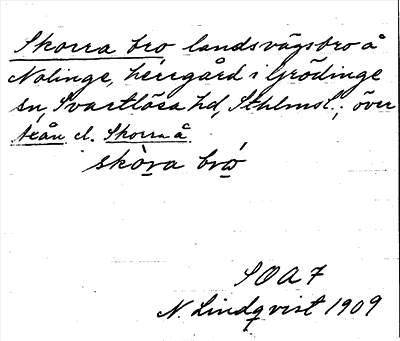 Skorra bro, landsvägsbro å
Nolinge, herrgård i Grödinge
sn, Svartlösa hd, Sthlmsl.; över
Axån el. Skorraå.
skòra bró
SOA 7
N. Lindqvist 1909